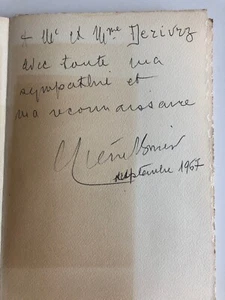 à Mr et Mme Derivrz
avec toute ma
sympathie et
ma reconnaissance
septembre 1967